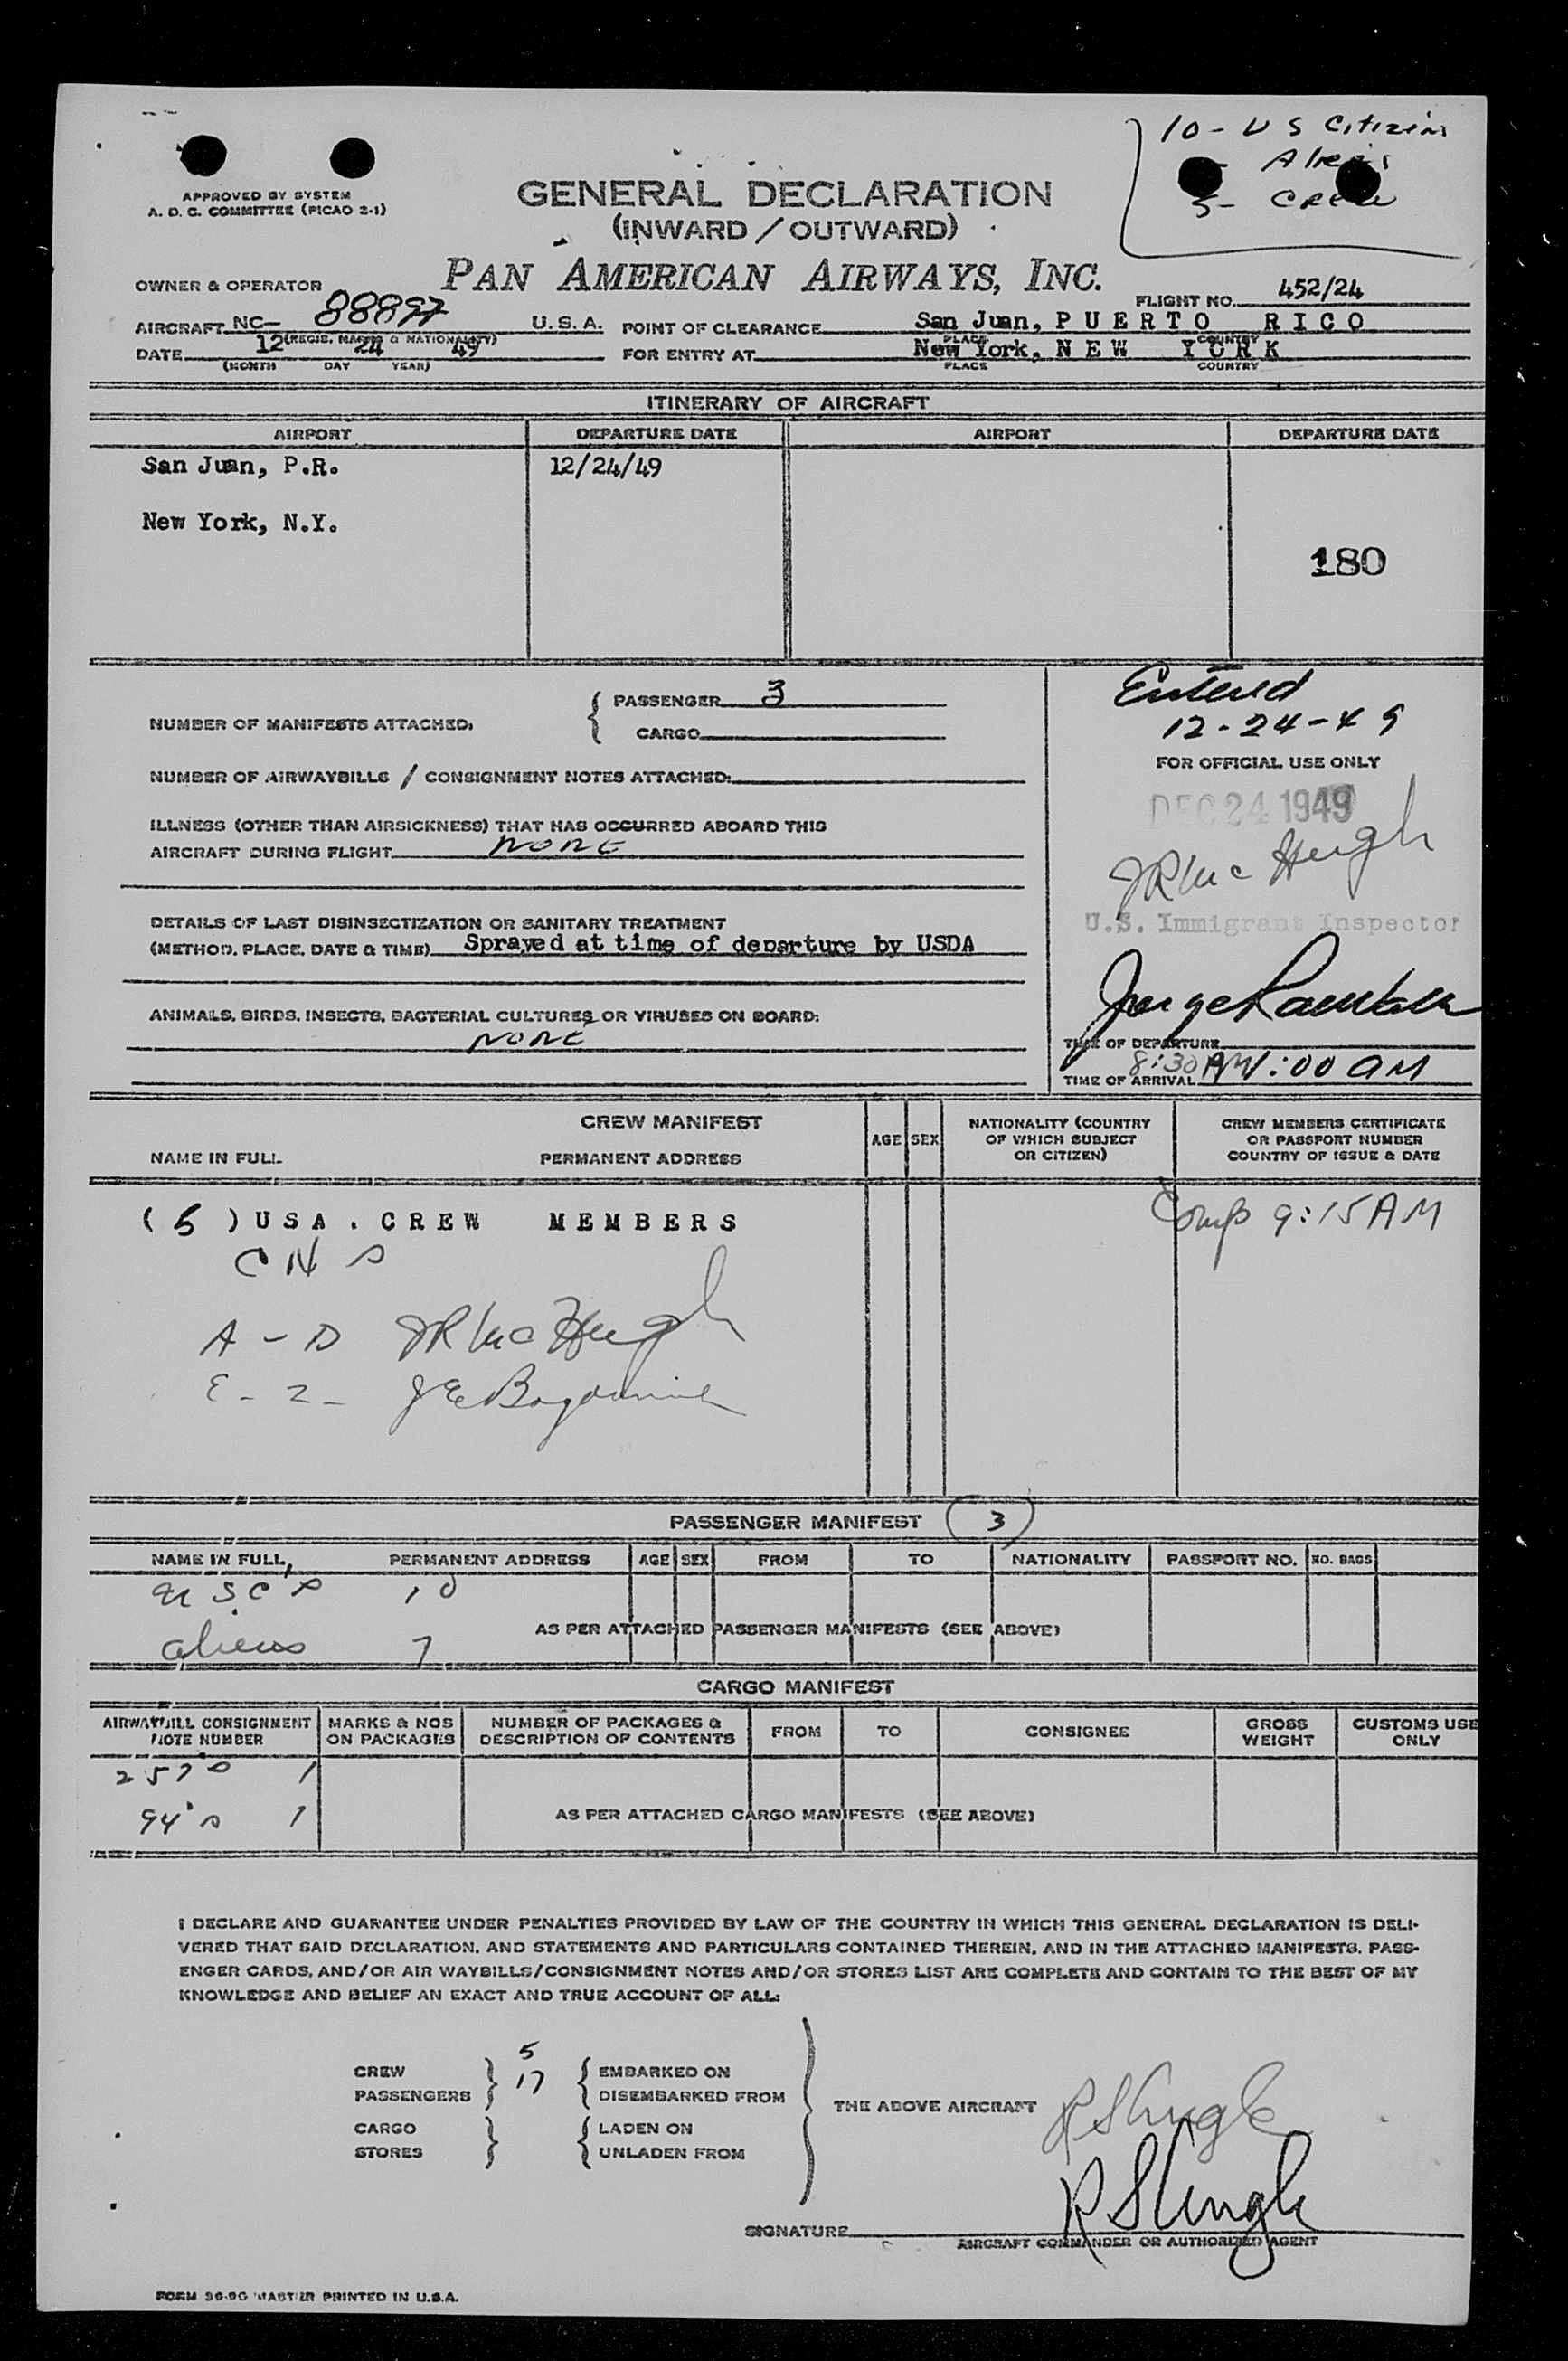 10 - U S Citizens
Aliens
5 - Crew
APPROVED BY SYSTEM
A. D. C. COMMITTEE (PICAO 2-1)
GENERAL DECLARATION
(INWARD / OUTWARD)
OWNER & OPERATOR PAN AMERICAN AIRWAYS, INC.
FLIGHT NO. 452/24
AIRCRAFT NC- 88897 U.S.A. POINT OF CLEARANCE San Juan, PUERTO RICO
(REGIS. MARKS & NATIONALITY) PLACE COUNTRY
DATE 12 24 49 FOR ENTRY AT New York, NEW YORK
(MONTH DAY YEAR) PLACE COUNTRY
ITINERARY OF AIRCRAFT
AIRPORT DEPARTURE DATE AIRPORT DEPARTURE DATE
San Juan, P.R. 12/24/49
New York, N.Y.
180
NUMBER OF MANIFESTS ATTACHED: PASSENGER 3
CARGO
Entered
12-24-49
FOR OFFICIAL USE ONLY
NUMBER OF AIRWAYBILLS / CONSIGNMENT NOTES ATTACHED:
DEC 24 1949
ILLNESS (OTHER THAN AIRSICKNESS) THAT HAS OCCURRED ABOARD THIS
AIRCRAFT DURING FLIGHT none
JR McHugh
U.S. Immigrant Inspector
DETAILS OF LAST DISINSECTIZATION OR SANITARY TREATMENT
(METHOD, PLACE, DATE & TIME) Sprayed at time of departure by USDA
ANIMALS, BIRDS, INSECTS, BACTERIAL CULTURES OR VIRUSES ON BOARD:
none
Jorge
TIME OF DEPARTURE
8:30 AM 1:00 AM
TIME OF ARRIVAL
CREW MANIFEST
NAME IN FULL PERMANENT ADDRESS AGE SEX NATIONALITY (COUNTRY OF WHICH SUBJECT OR CITIZEN) CREW MEMBERS CERTIFICATE OR PASSPORT NUMBER COUNTRY OF ISSUE & DATE
( 5 ) USA . CREW MEMBERS
Comp 9:15 AM
A - D JR McHugh
E - Z -
PASSENGER MANIFEST (3)
NAME IN FULL PERMANENT ADDRESS AGE SEX FROM TO NATIONALITY PASSPORT NO. NO. BAGS
USCs 10
AS PER ATTACHED PASSENGER MANIFESTS (SEE ABOVE)
aliens 7
CARGO MANIFEST
AIRWAYBILL CONSIGNMENT NOTE NUMBER MARKS & NOS ON PACKAGES NUMBER OF PACKAGES & DESCRIPTION OF CONTENTS FROM TO CONSIGNEE GROSS WEIGHT CUSTOMS USE ONLY
257s 1
94's 1 AS PER ATTACHED CARGO MANIFESTS (SEE ABOVE)
I DECLARE AND GUARANTEE UNDER PENALTIES PROVIDED BY LAW OF THE COUNTRY IN WHICH THIS GENERAL DECLARATION IS DELI-
VERED THAT SAID DECLARATION, AND STATEMENTS AND PARTICULARS CONTAINED THEREIN, AND IN THE ATTACHED MANIFESTS, PASS-
ENGER CARDS, AND/OR AIR WAYBILLS/CONSIGNMENT NOTES AND/OR STORES LIST ARE COMPLETE AND CONTAIN TO THE BEST OF MY
KNOWLEDGE AND BELIEF AN EXACT AND TRUE ACCOUNT OF ALL:
CREW 5 EMBARKED ON
PASSENGERS 17 DISEMBARKED FROM
THE ABOVE AIRCRAFT
CARGO LADEN ON
STORES UNLADEN FROM
R Slingle
R Slingle
SIGNATURE
AIRCRAFT COMMANDER OR AUTHORIZED AGENT
FORM 96-9G MASTER PRINTED IN U.S.A.